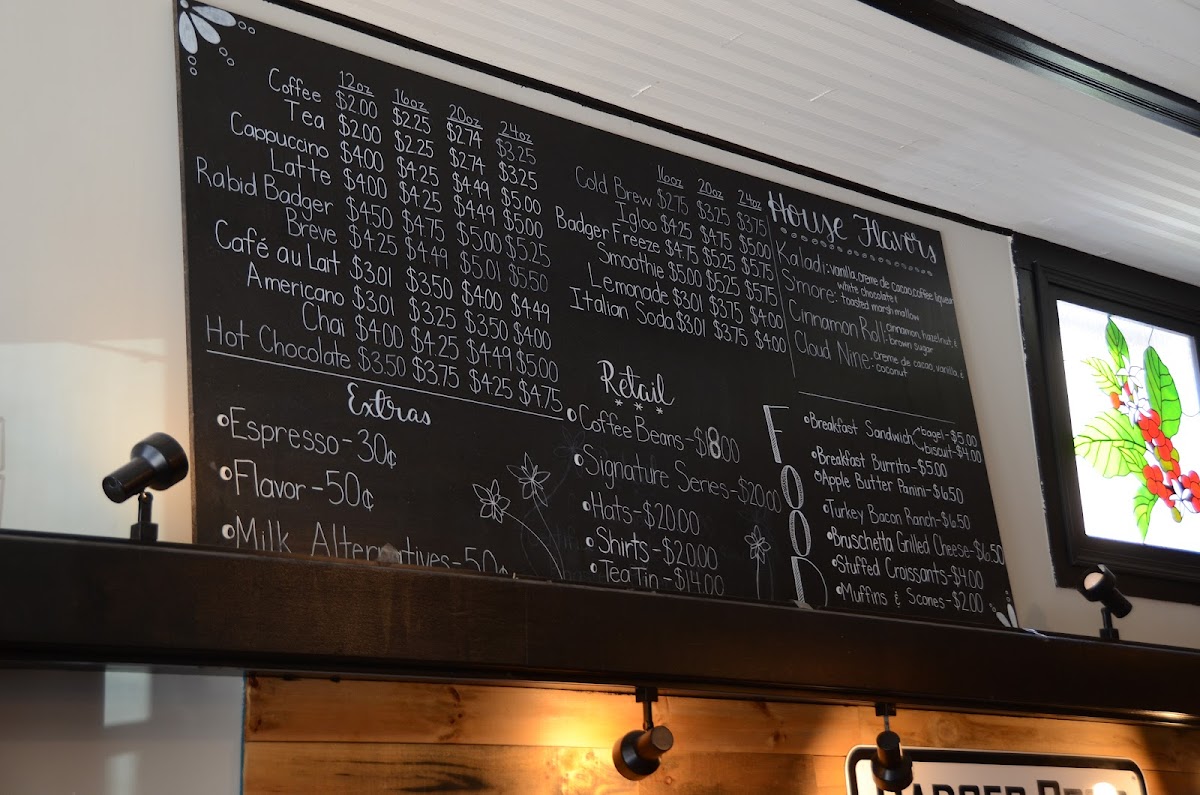 12oz 16oz 20oz 24oz
Coffee $2.00 $2.25 $2.74 $3.25
Tea $2.00 $2.25 $2.74 $3.25
Cappuccino $4.00 $4.25 $4.49 $5.00
Latte $4.00 $4.25 $4.49 $5.00
Rabid Badger $4.50 $4.75 $5.00 $5.25
Breve $4.25 $4.49 $5.01 $5.50
Café au Lait $3.01 $3.50 $4.00 $4.49
Americano $3.01 $3.25 $3.50 $4.00
Chai $4.00 $4.25 $4.49 $5.00
Hot Chocolate $3.50 $3.75 $4.25 $4.75
Extras
Espresso - 30¢
Flavor - 50¢
Milk Alternatives - 50¢
16oz 20oz 24oz
Cold Brew $2.75 $3.25 $3.75
Igloo $4.25 $4.75 $5.00
Badger Freeze $4.75 $5.25 $5.75
Smoothie $5.00 $5.25 $5.75
Lemonade $3.01 $3.75 $4.00
Italian Soda $3.01 $3.75 $4.00
Retail
Coffee Beans - $18.00
Signature Series - $20.00
Hats - $20.00
Shirts - $20.00
Tea Tin - $14.00
House Flavors
Kaladi: vanilla, creme de cacao, coffee liqueur
S'more: white chocolate &
toasted marshmallow
Cinnamon Roll: cinnamon, hazelnut, &
brown sugar
Cloud Nine: creme de cacao, vanilla, &
coconut
FOOD
Breakfast Sandwich bagel - $5.00
biscuit - $4.00
Breakfast Burrito - $5.00
Apple Butter Panini - $6.50
Turkey Bacon Ranch - $6.50
Bruschetta Grilled Cheese - $6.50
Stuffed Croissants - $4.00
Muffins & Scones - $2.00